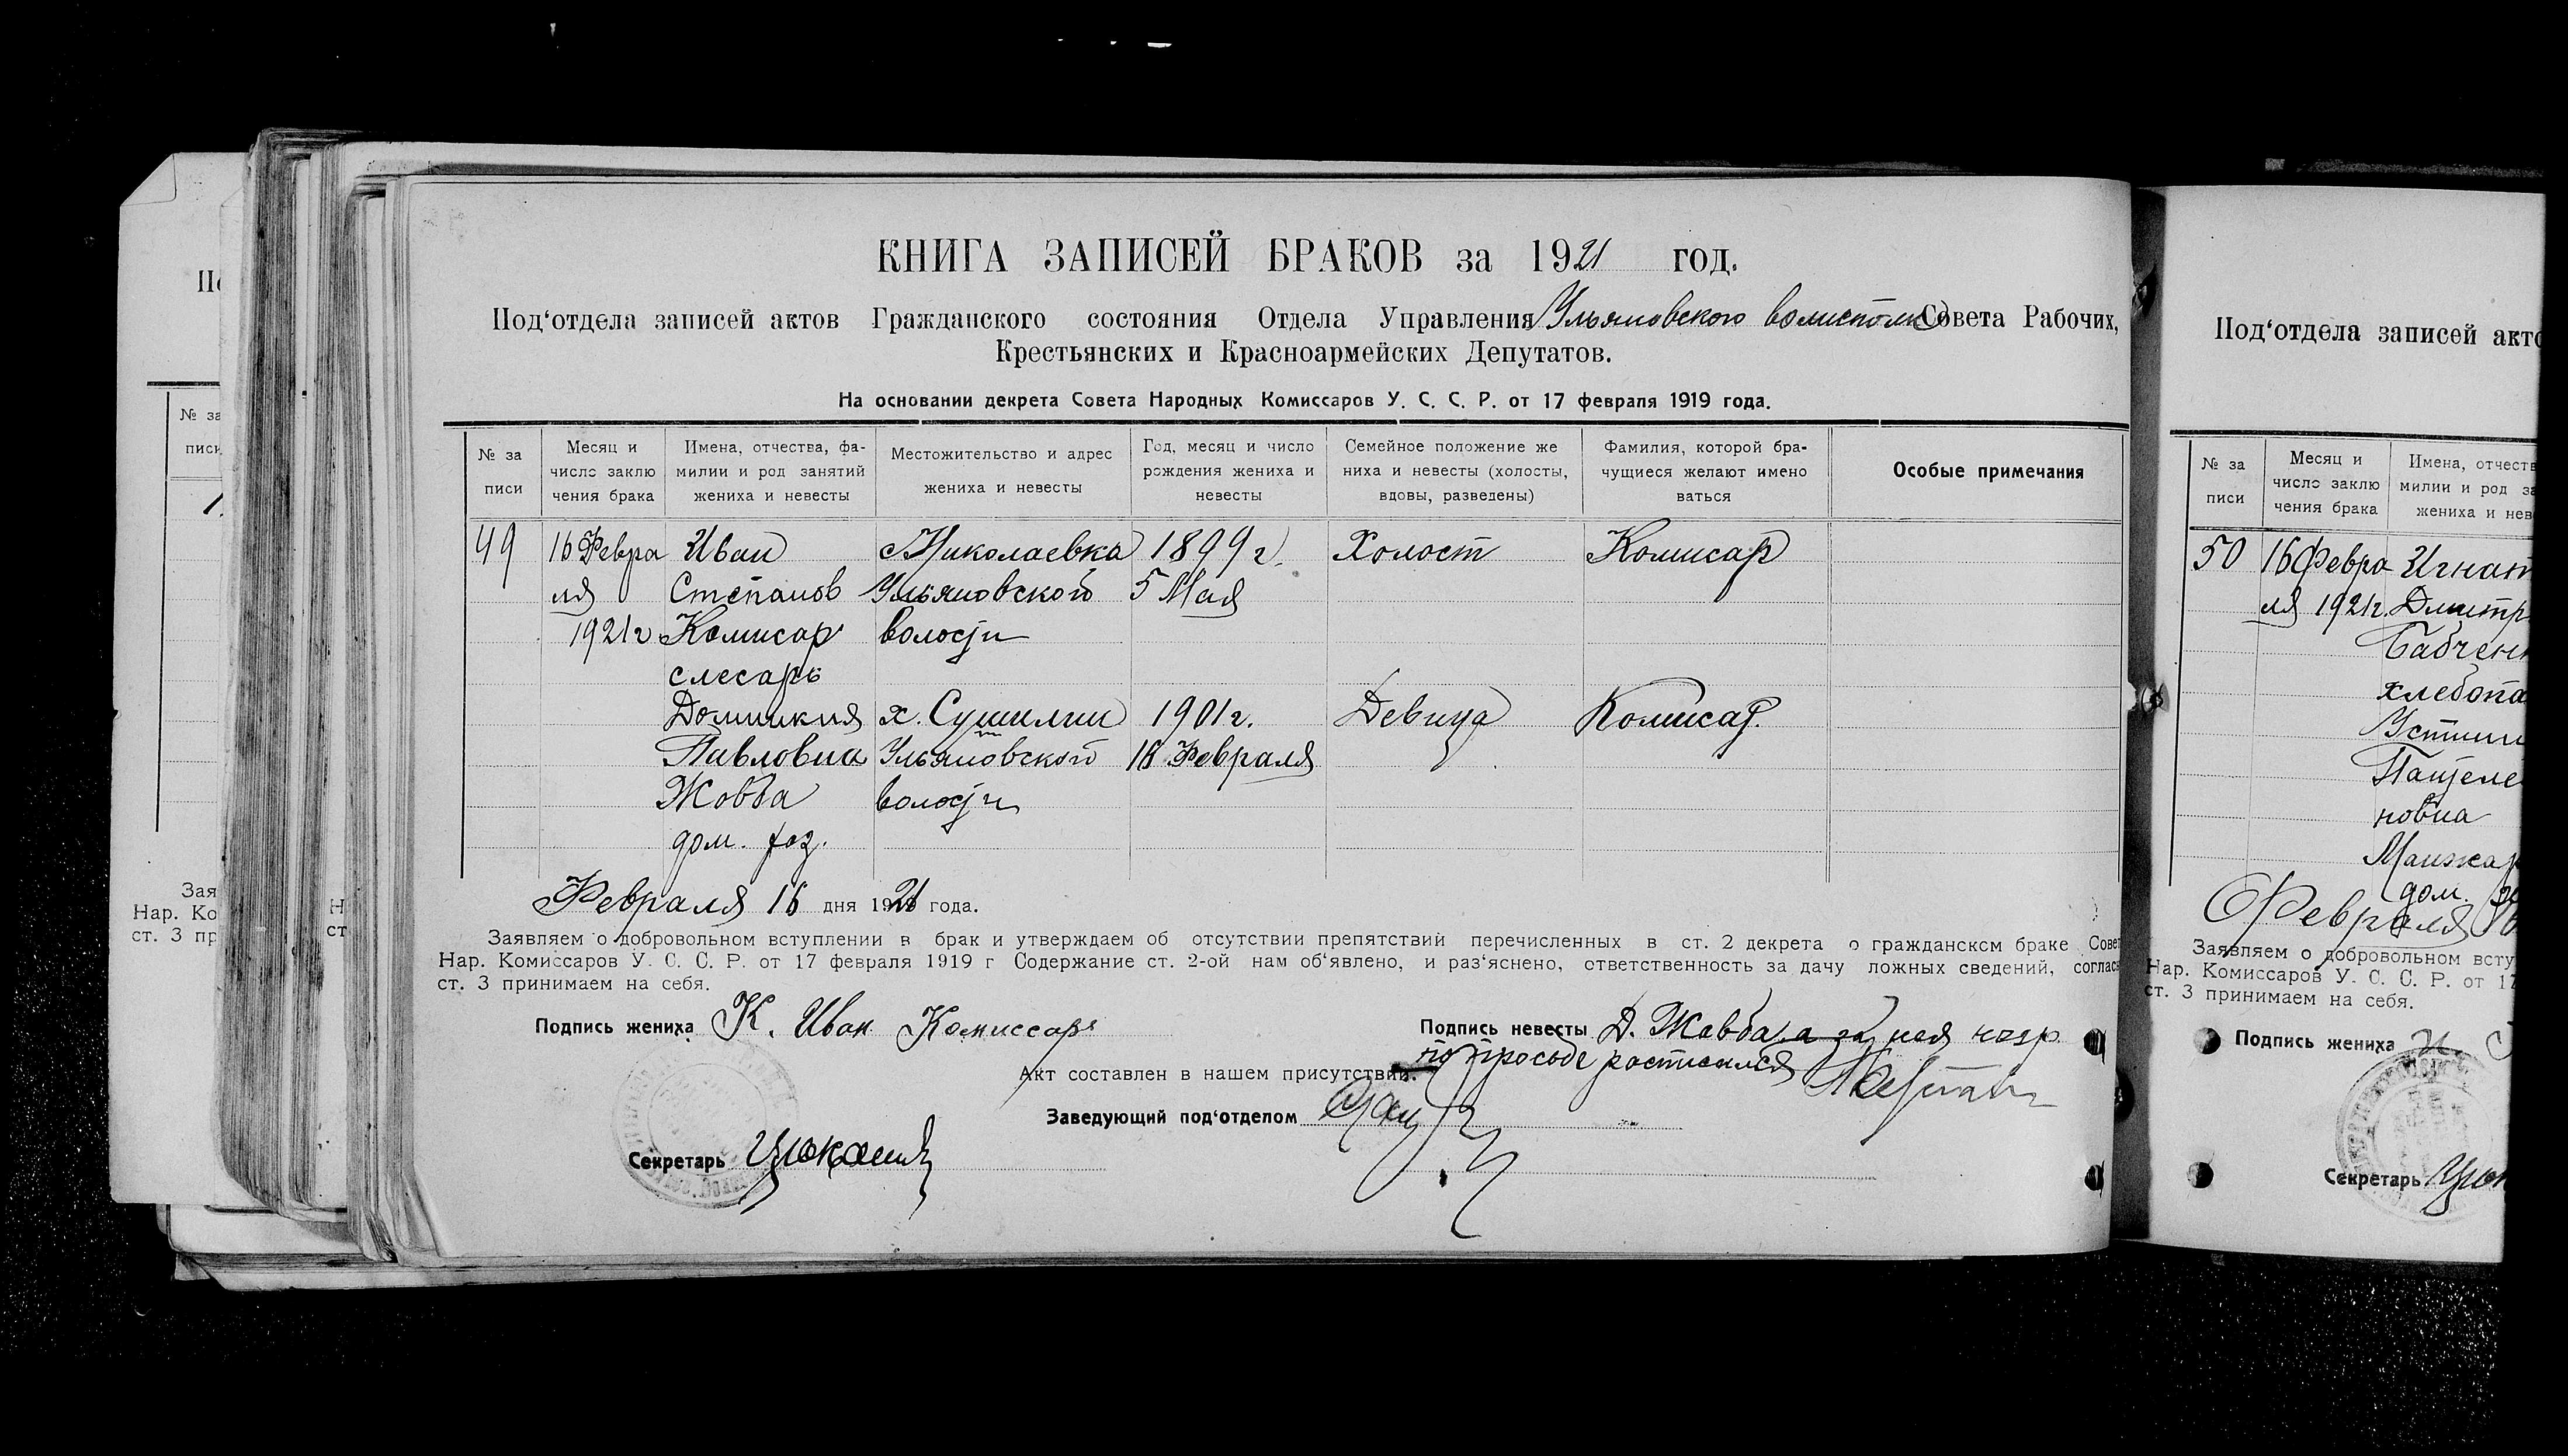 КНИГА ЗАПИСЕЙ БРАКОВ за 1921 год.
Под'отдела записей актов Гражданского состояния Отдела Управления Ульяновского Совета Рабочих,
Крестьянских и Красноармейских Депутатов.
На основании декрета Совета Народных Комиссаров У. С. С. Р. от 17 февраля 1919 года.
№ за писи
Месяц и число заклю чения брака
Имена, отчества, фа- милии и род занятий жениха и невесты
Местожительство и адрес жениха и невесты
Год, месяц и число рождения жениха и невесты
Семейное положение же ниха и невесты (холосты, вдовы, разведены)
Фамилия, которой бра- чущиеся желают имено ваться
Особые примечания
49 16 Февра Иван с Николаевка 1899 г. Холост Комисар
ля Степанов Ульяновской 5 Мая
1921 г Комисар волости
слесарь
Домникия х. Сушилин 1901 г. Девица Комисар.
Павловна Ульяновской 18 Февраля
Жовба волости
дом. хоз.
Февраля 16 дня 1921 года.
Заявляем о добровольном вступлении в брак и утверждаем об отсутствии препятствий перечисленных в ст. 2 декрета о гражданском браке Совет
Нар. Комиссаров У. С. С. Р. от 17 февраля 1919 г Содержание ст. 2-ой нам об'явлено, и раз'яснено, ответственность за дачу ложных сведений, соглас
ст. 3 принимаем на себя.
Подпись жениха К. Иван Комиссаръ
Подпись невесты Д. Жовба а за нея негр
по просьберостисался
Акт составлен в нашем присутствии.
Заведующий под'отделом
Секретарь
Под'отдела записей акто
№ за писи
Месяц и число заклю чения брака
Имена, отчеств милии и род за жениха и нев
50 16 Февра Игнат
ля 1921 г. Дмитр
Бабчен
хлебопа
Устин
Пантеле
новна
Манжар
дом.
Февраля 16
Заявляем о добровольном всту
Нар. Комиссаров У. С. С. Р. от 17
ст. 3 принимаем на себя.
Подпись жениха И.
Секретарь
№ за
писи
Зая
Нар. Ко
ст. 3 пр